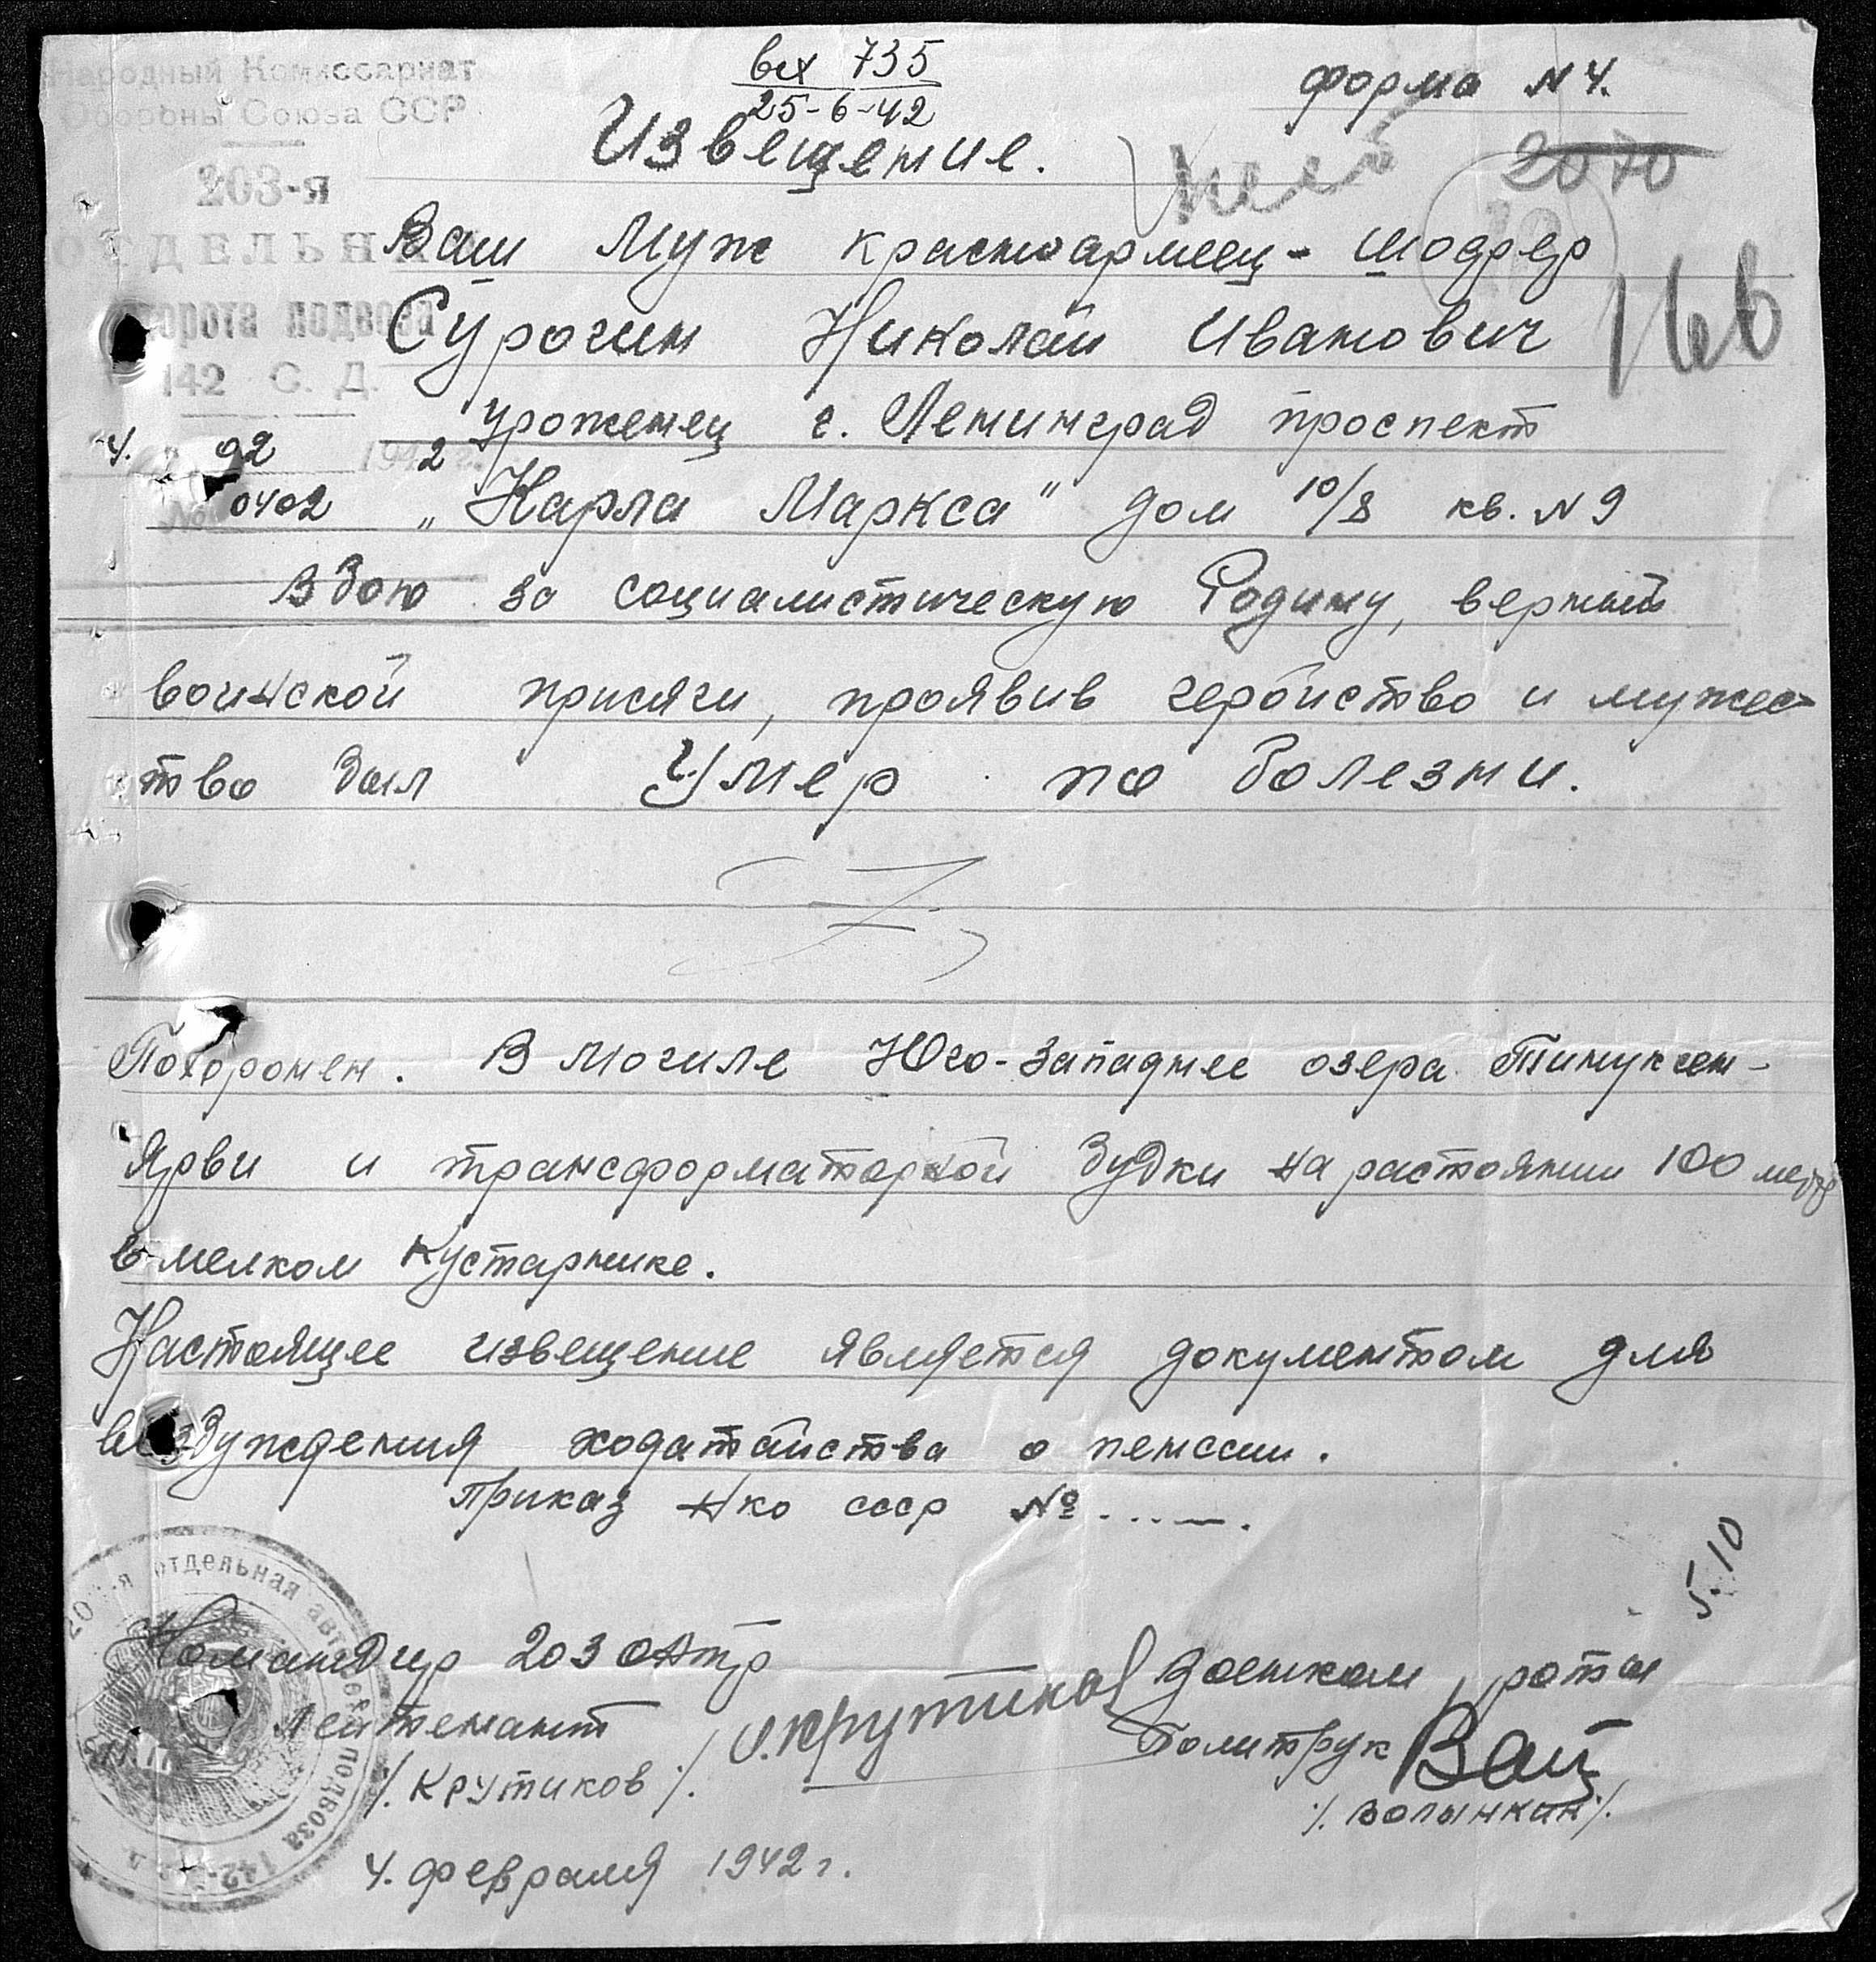 Народный Комиссариат
Обороны Союза ССР
203-я
ОТДЕЛЬНА
рота подвоза
142 С. Д.
4. 02 1942 г.
№ 0402
вх 735
25-6-42
форма N 4.
Извещение.
2070
166
Ваш муж красноармеец- шофер
Сурогин Николай Иванович
уроженец г. Ленинград проспект
„Карла Маркса" дом 10/8 кв. N 9
В бою за социалистическую Родину, верный
воинской присяги, проявив геройство и мужес-
тво был Умер по болезни.
Похоронен. В могиле Юго-Западнее озера Тимуксен-
Ярви и трансформаторной будки на растоянии 100 метр
в мелком кустарнике.
Настоящее извещение является документом для
возбуждения ходатайства о пенсии.
Приказ НКО СССР № .....
5.10
Командир 203 оатр
лейтенант
Крутиков
/. Крутиков /.
Военком роты
Политрук
/. Волынкин /.
4. февраля 1942 г.
203-я отдельная авторота подвоза 142-